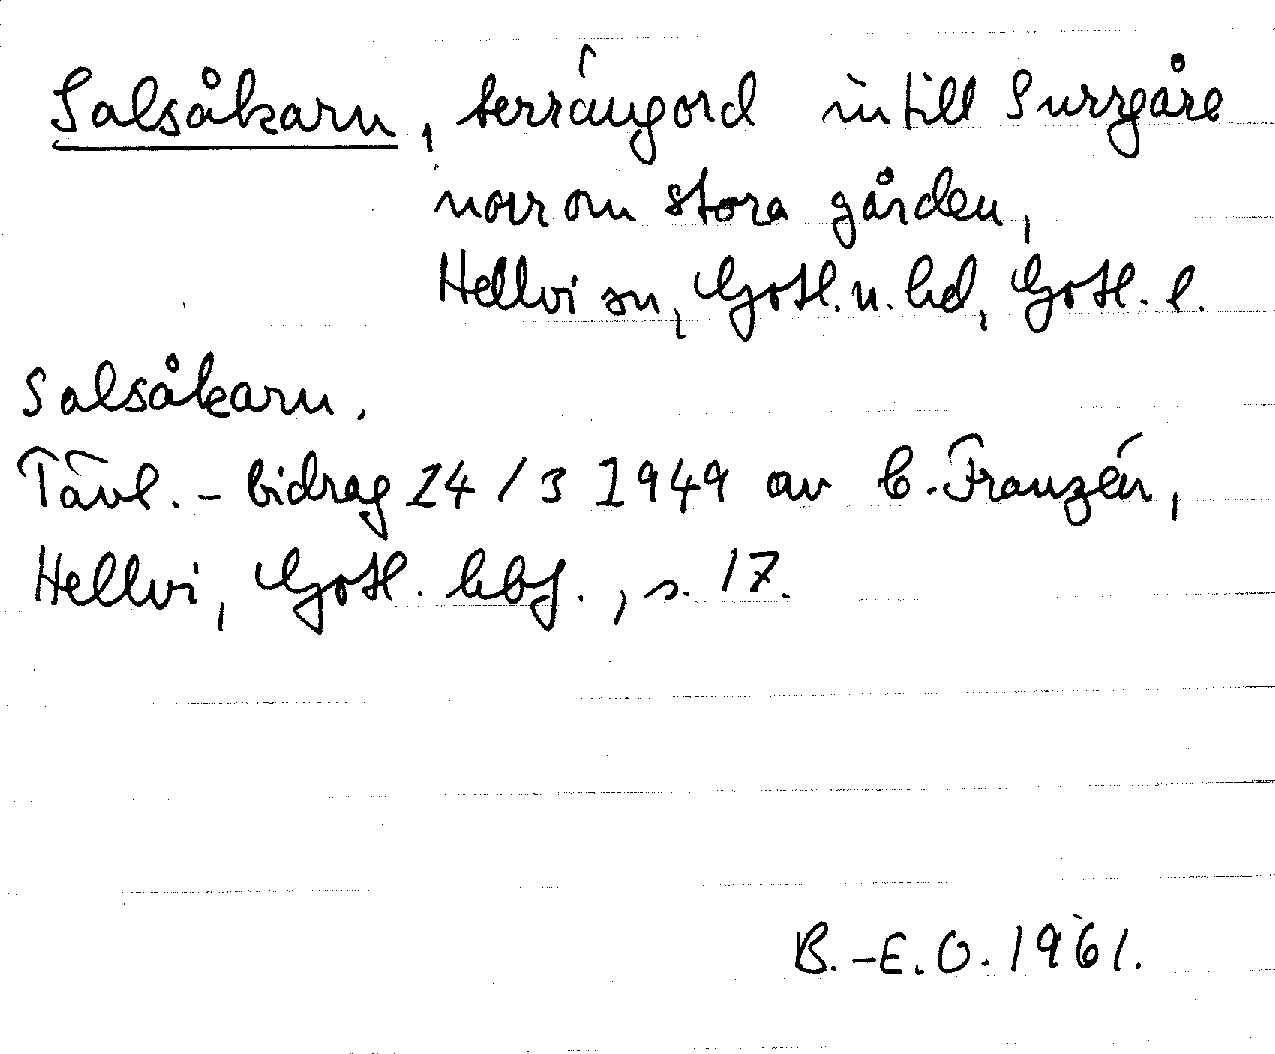 Salsåkarn, terrängord intill Surrgåre
norr om stora gården,
Hellvi sn, Gotl. n. hd, Gotl. l.
Salsåkarn.
Tävl.-bidrag 24/3 1949 av C. Franzén,
Hellvi, Gotl. hbf., s. 17.
B.-E.O. 1961.